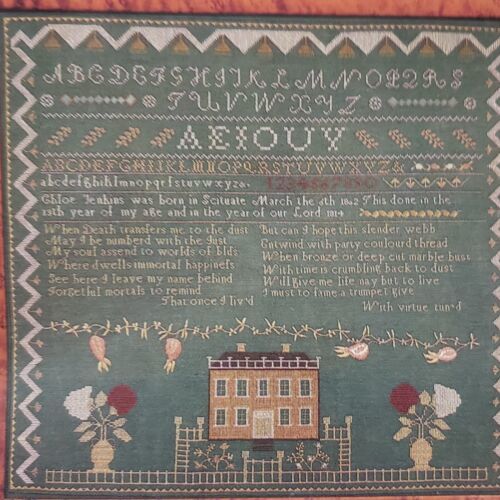 ABCDEFGHIJKLMNOPQRS
TUVWXYZ
AEIOUY
ABCDEFGHIJKLMNOPQRSTUVWXYZ&
abcdefghiklmnopqrstuvwxyz.
Chloe Jenkins was born in Scituate March the 4th 1802 This done in the
13th year of my age and in the year of our Lord 1814
When Death transfers me to the dust
May I be numberd with the Just
My soul assend to worlds of bliſs
Where dwells immortal happineſs
See here I leave my name behind
Forgetful mortals to remind
That once I liv'd
But can I hope this slender webb
Entwind with party coulourd thread
When bronze or deep cut marble bust
With time is crumbling back to dust
Will give me life may but to live
I must to fame a trumpet give
With virtue tun'd